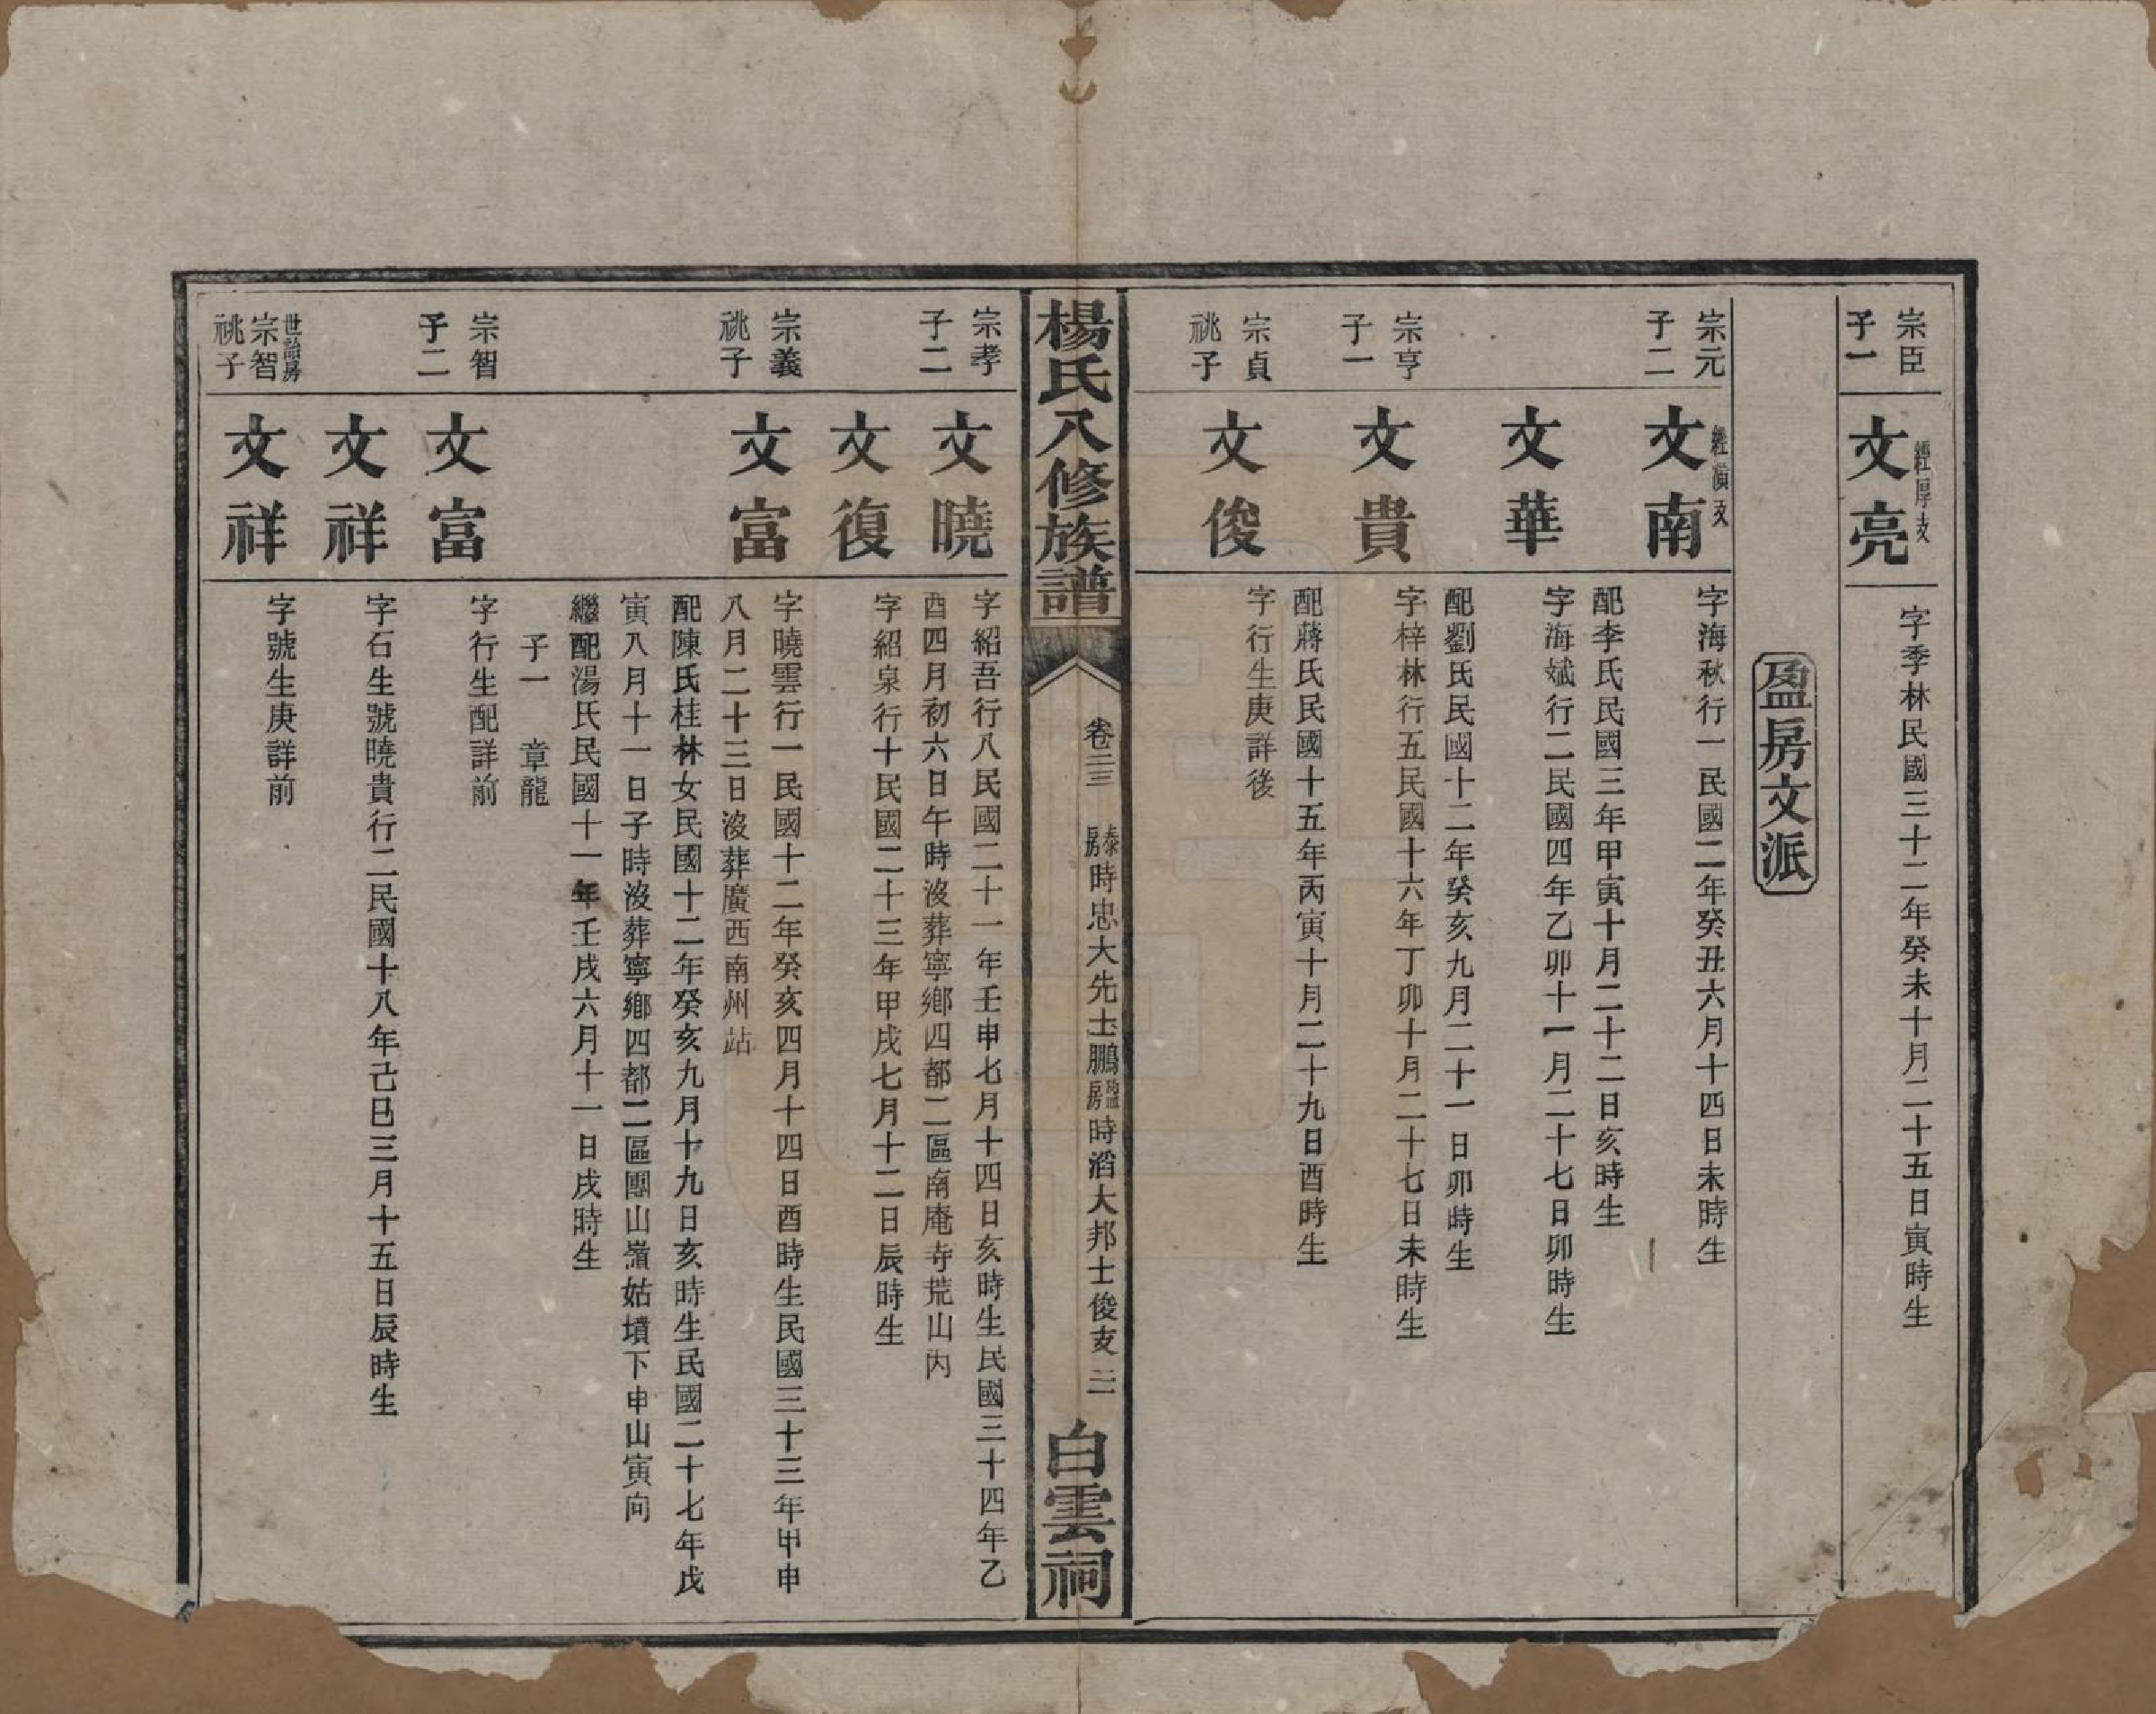 宗臣
子一
經厚支
文亮
字季林民國三十二年癸未十月二十五日寅時生
盈房文派
宗元
子二
文南
字海秋行一民國二年癸丑六月十四日未時生
配李氏民國三年甲寅十月二十二日亥時生
文華
字海斌行二民國四年乙卯十一月二十七日卯時生
配劉氏民國十二年癸亥九月二十一日卯時生
宗亨
子一
文貴
字梓林行五民國十六年丁卯十月二十七日未時生
配蔣氏民國十五年丙寅十月二十九日酉時生
宗貞
祧子
文俊
字行生庚詳後
楊氏八修族譜
卷二三
泰房時忠大先士鵬房時滔大邦士俊支
二
白雲祠
宗孝
子二
文曉
字紹吾行八民國二十一年壬申七月十四日亥時生民國三十四年乙
酉四月初六日午時沒葬寧鄉四都二區南庵寺荒山內
文復
字紹泉行十民國二十三年甲戌七月十二日辰時生
宗義
祧子
文富
字曉雲行一民國十二年癸亥四月十四日酉時生民國三十三年甲申
八月二十三日沒葬廣西南州站
配陳氏桂林女民國十二年癸亥九月十九日亥時生民國二十七年戊
寅八月十一日子時沒葬寧鄉四都二區團山嶺姑墳下申山寅向
繼配湯氏民國十一年壬戌六月十一日戌時生
子一 章龍
宗智
子二
文富
字行生配詳前
文祥
字石生號曉貴行二民國十八年己巳三月十五日辰時生
世詒房
宗智
祧子
文祥
字號生庚詳前